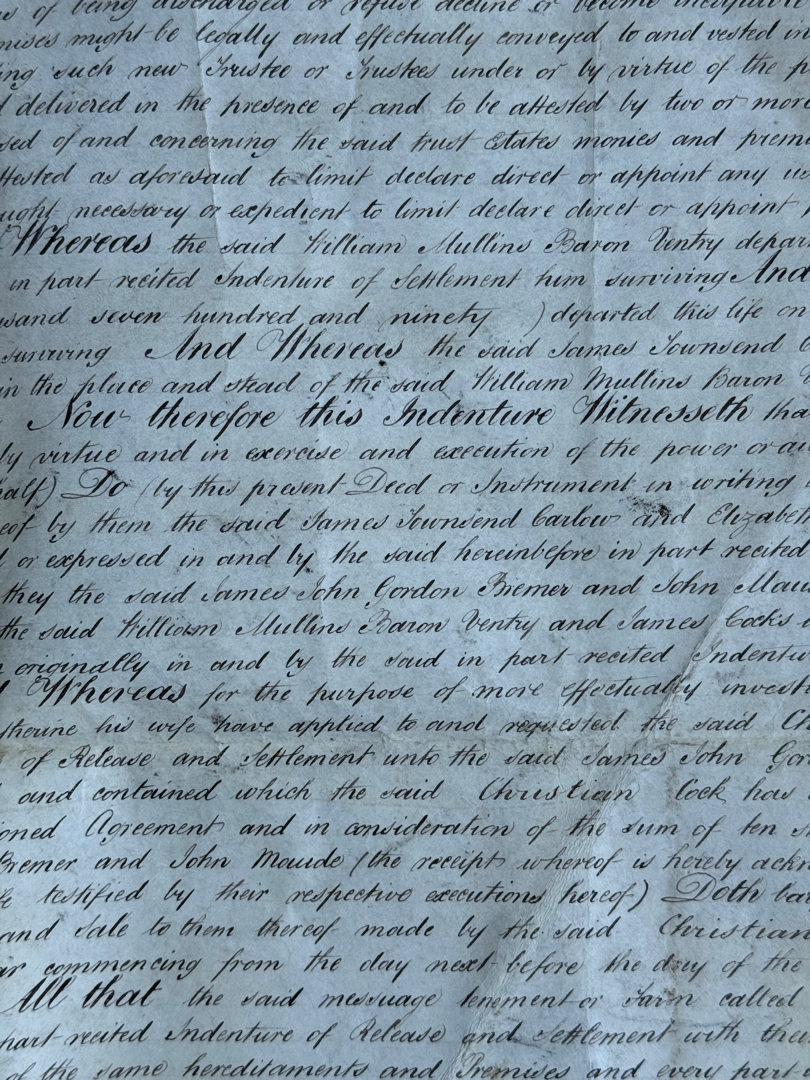 of being discharged or refuse decline or become incapable
mises might be legally and effectually conveyed to and vested in
ing such new Trustee or Trustees under or by virtue of the p
d delivered in the presence of and to be attested by two or more
sed of and concerning the said trust Estates monies and prem
ttested as aforesaid to limit declare direct or appoint any us
ught necessary or expedient to limit declare direct or appoint
Whereas the said William Mullins Baron Ventry depar
in part recited Indenture of Settlement him surviving And
usand seven hundred and ninety ) departed this life on
surviving And Whereas the said James Townsend
in the place and stead of the said William Mullins Baron
Now therefore this Indenture Witnesseth tha
by virtue and in exercise and execution of the power or au
half) Do (by this present Deed or Instrument in writing
eof by them the said James Townsend Carlow and Elizabet
d or expressed in and by the said hereinbefore in part recited
they the said James John Gordon Bremer and John Mau
the said William Mullins Baron Ventry and James Cocks
originally in and by the said in part recited Indentu
Whereas for the purpose of more effectually invest
therine his wife have applied to and requested the said Ch
of Release and Settlement unto the said James John Gor
and contained which the said Christian Cock has
ioned Agreement and in consideration of the sum of ten s
Bremer and John Maude (the receipt whereof is hereby ackn
testified by their respective executions hereof) Doth bar
and Sale to them thereof made by the said Christian
ar commencing from the day next before the day of the
All that the said messuage tenement or Farm called
part recited Indenture of Release and Settlement with their
of the same hereditaments and Premises and every part